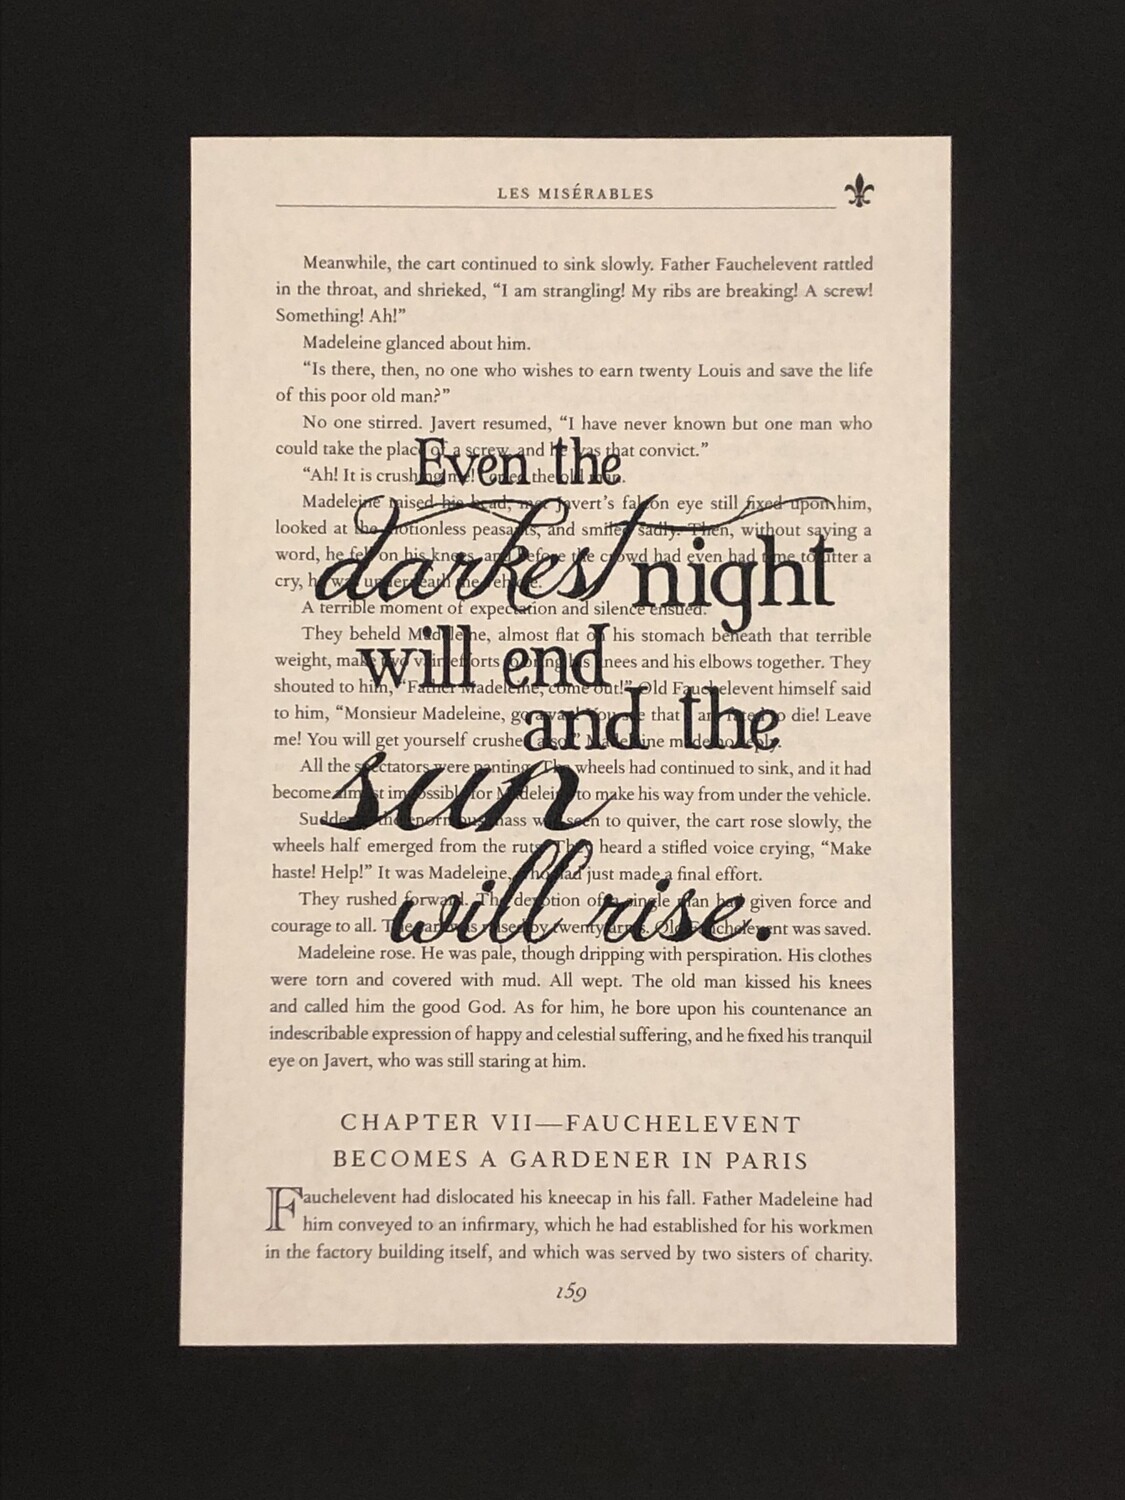 LES MISÉRABLES
Meanwhile, the cart continued to sink slowly. Father Fauchelevent rattled
in the throat, and shrieked, “I am strangling! My ribs are breaking! A screw!
Something! Ah!”
Madeleine glanced about him.
“Is there, then, no one who wishes to earn twenty Louis and save the life
of this poor old man?”
No one stirred. Javert resumed, “I have never known but one man who
could take the place of a screw, and he was that convict.”
“Ah! It is crushing me!” cried the old man.
Madeleine raised his head, met Javert’s falcon eye still fixed upon him,
looked at the motionless peasants, and smiled sadly. Then, without saying a
word, he fell on his knees, and before the crowd had even had time to utter a
cry, he was underneath the vehicle.
A terrible moment of expectation and silence ensued.
They beheld Madeleine, almost flat on his stomach beneath that terrible
weight, make two vain efforts to bring his knees and his elbows together. They
shouted to him, “Father Madeleine, come out!” Old Fauchelevent himself said
to him, “Monsieur Madeleine, go away! You see that I am fated to die! Leave
me! You will get yourself crushed also!” Madeleine made no reply.
All the spectators were panting. The wheels had continued to sink, and it had
become almost impossible for Madeleine to make his way from under the vehicle.
Suddenly the enormous mass was seen to quiver, the cart rose slowly, the
wheels half emerged from the ruts. They heard a stifled voice crying, “Make
haste! Help!” It was Madeleine, who had just made a final effort.
They rushed forward. The devotion of a single man had given force and
courage to all. The cart was raised by twenty arms. Old Fauchelevent was saved.
Madeleine rose. He was pale, though dripping with perspiration. His clothes
were torn and covered with mud. All wept. The old man kissed his knees
and called him the good God. As for him, he bore upon his countenance an
indescribable expression of happy and celestial suffering, and he fixed his tranquil
eye on Javert, who was still staring at him.
CHAPTER VII—FAUCHELEVENT
BECOMES A GARDENER IN PARIS
Fauchelevent had dislocated his kneecap in his fall. Father Madeleine had
him conveyed to an infirmary, which he had established for his workmen
in the factory building itself, and which was served by two sisters of charity.
159
Even the
darkest night
will end
and the
sun
will rise.